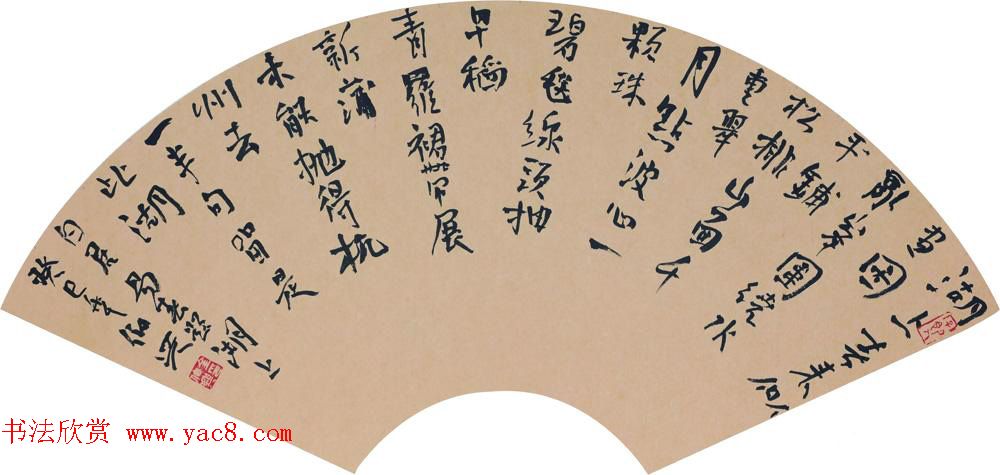 湖上春来似
畵圖
亂峯圍繞水
平鋪
松排山面千
重翠
月點波心一
顆珠
碧毯線頭抽
早稻
青羅裙帶展
新蒲
未能抛得杭
州去
一半句留是
此湖
白居易春题湖上
癸巳
书法欣赏 www.yac8.com